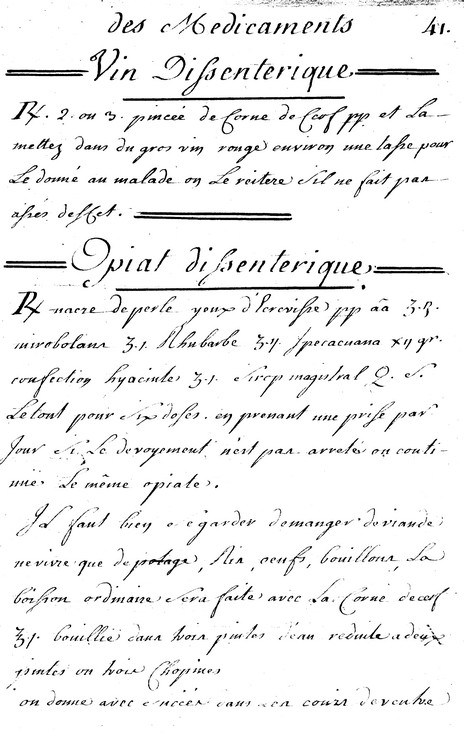 des Medicaments 41.
Vin Dissenterique
℞. 2. ou 3. pincée de Corne de Cerf pp et La
mettez dans du gros vin rouge environ une tasse pour
Le donné au malade on Le reitere Sil ne fait pas
assés dEffet.
Opiat dissenterique
℞ nacre de perle yeux d'Ecrevisse pp aa ʒ.
mirobolans ʒ.j. Rhubarbe ʒ.ij. Jpecacuana xij gr.
confection hyacinte ʒ.j. Sirop magistral Q. S.
Le tout pour Six doses. en prenant une prise par
Jour Si Le devoyement n'est pas areté on conti-
nüe Le même opiate.
Jl faut bien garder de manger de viande
ne vivre que de potage, Ris, oeufs, bouillons, La
boission ordinaire Sera faite avec La Corne de cerf
ʒ.j. bouillie dans trois pintes d'eau reduite a deux
pintes ou trois Chopines
on donne avec succés dans cours de ventre